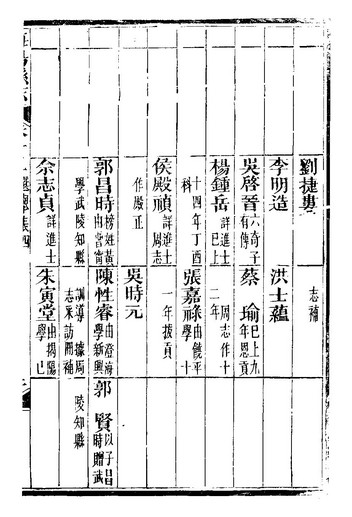 劉捷㪺
志補
李明造
洪士蘊
吳啓晉六奇子有傳
蔡瑜巳上九年恩貢
楊鍾岳詳進士巳上
周志作十二年
十四年丁酉科
張嘉祿由饒平學十
侯殿禎詳進士
一年拔貢
作殿正周志
吳時元
郭昌時榜姓黃由當甯
陳性睿由澄海學新興
郭賢以子昌時贈武
學武陵知縣
訓導據周志采訪冊補
陵知縣
佘志貞詳進士
朱寅堂由揭陽學巳